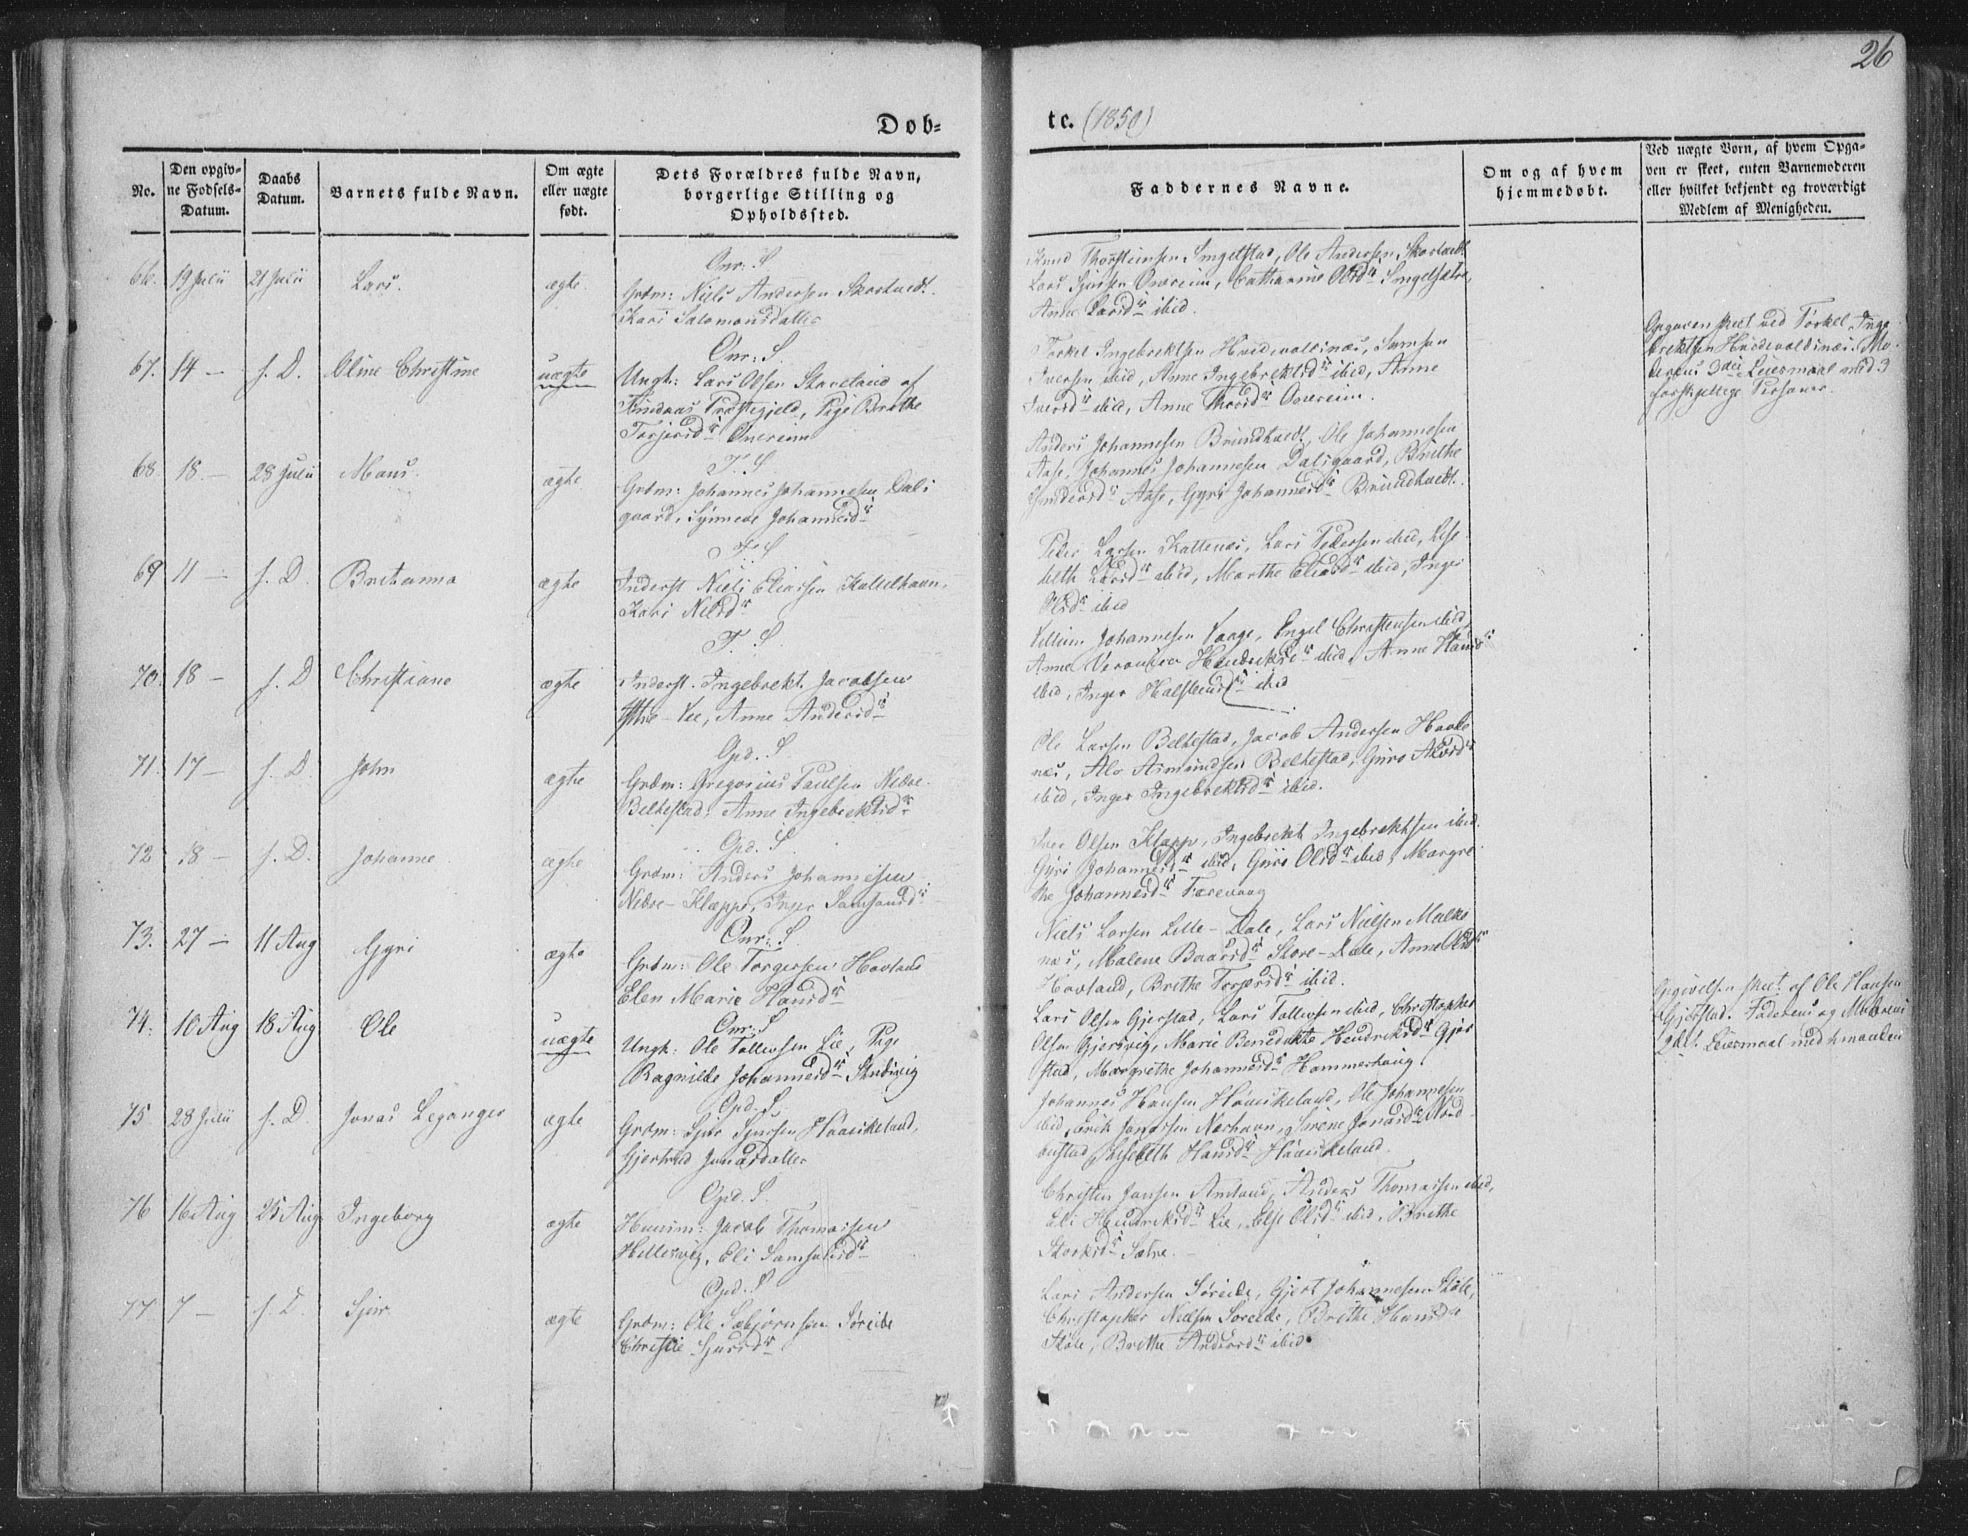 26
Dob-
te. (1850)
No.
Den opgiv-
ne Fødsels-
Datum.
Daabs
Datum.
Barnets fulde Navn.
Om ægte
eller uægte
født.
Dets Forældres fulde Navn,
borgerlige Stilling og
Opholdssted.
Faddernes Navne.
Om og af hvem
hjemmedøbt.
Ved uægte Børn, af hvem Opga-
ven er skeet, enten Barnemoderen
eller hvilket bekjendt og troværdigt
Medlem af Menigheden.
66. 19 Julii 21 Julii Lars. ægte.
Onr: S
Grdm: Niels Andersen Skortvedt.
Kari Salomonsdatter
Knud Thorsteinsen Singelstad, Ole Andersen Skortvedt
Lars Sjursen Onereim, Catharine Olsdr
Anne Larsdr ibid.
67. 14 — s. D. Oline Christine uægte
Onr: S.
Ungk: Lars Olsen Skaveland af
Findaas Præstegjeld, Pige Brithe
Torjersdr Onereim
Torkel Ingebrektsen Hvidevoldsnæs, Samson
Iversen ibid, Anne Ingebrektsdr ibid, Anne
Iversdr ibid, Anne Thorsdr Onereim.
Opgaven skeet ved Torkel Inge
brektsen Hvidevoldsnæs. Mo
derens 3die Leiermaal med 3
forskjellige Personer.
68 18 — 28 Julii Mons. ægte
F. S.
Grdm: Johannes Johannesen Dals
gaard, Synneve Johannesdr
Anders Johannesen Brundtvedt, Ole Johannesen
Aase, Johannes Johannesen Dalsgaard, Brithe
Aase, Gyri Johannesdr Brundtvedt.
69 11 — s. D. Britanna ægte
F. S
Inderst Niels Eliassen Kattelhavn,
Kari Nilsdr
Peder Larsen Kattenæs, Lars Pedersen ibid, Else
beth Larsdr ibid, Marthe Eliasdr ibid, Inger
Olsdr ibid
70. 18 — s. D Christiane ægte
F. S.
Inderst. Ingebrekt Jacobsen
Ytre-Vee, Anne Andersdr
Villum Johannesen Vaage, Engel Christensen ibid,
Anne Veronica Hendriksdr ibid, Anne Hansdr
ibid, Inger Halsteinsdr ibid
71. 17 — s. D. John ægte
Opd. S
Grdm: Gregorius Paulsen Nedre
Belkestad, Anne Ingebrektsdr
Ole Larsen Belkestad, Jacob Andersen Hovke
næs, Alv Asmundsen Belkestad, Guro
ibid, Inger Ingebrektsdr ibid.
72 18 — s. D. Johanne ægte
Opd. S.
Grdm: Anders Johannesen
Nedre-Klæppe, Inger Samsonsdr
Iver Olsen Klæpp, Ingebrekt Ingebrektsen ibid.
Gyri Johannesdr ibid, Guro Olsdr ibid, Margre
the Johannesdr Færevaag
73. 27 — 11 Aug Gyri ægte
Onr: S
Grdm: Ole Torgersen Hovland
Elen Marie Hansdr
Niels Larsen Lille-Dale, Lars Nielsen Malke
næs, Malene Baarsdr Store-Dale, Anne Olsdr
Hovland, Brithe Torjersdr ibid.
74. 10 Aug 18 Aug Ole uægte
Onr: S
Ungk: Ole Tollevsen Lie, Pige
Ragnilde Johannesdr Skulvig
Lars Olsen Gjerstad, Lars Tollevsen ibid, Christopher
Olsen Gjersvig, Marie Benedikte Hendriksdr Gjer
stad, Margrethe Johannesdr Hammerhaug.
Opgivelsen skeet af Ole Hansen
Gjerstad. Faderens og Moderens
Leiermaal med hinanden
75 28 Julii s. D. Jonas Leganger ægte
Opd. S
Grdm: Sjur Sjursen Haaviskeland,
Gjertrud Jonasdatter
Johannes Hansen Haaviskeland, Ole Johannesen
ibid, Erik Jonassen Nærhavn, Sirene Jonasdr Nord
bustad, Elsebeth Hansdr Haaviskeland.
76 16 Aug 25 Aug Ingeborg ægte
Opd. S.
Husm: Jacob Thomassen
Hellesvig, Eli Samsonsdr
Christen Jansen Amland, Anders Thomassen ibid,
Eli Hendriksdr Lie, Else Olsdr ibid, Brithe
Størksdr Sætre.
77. 7 — s. D. Sjur. ægte
Opd. S
Grdm: Ole Sæbjørnsen Søreide
Christie Sjursdr
Lars Andersen Søreide, Gjert Johannesen Støle,
Christopher Nielsen Soreide, Brithe Hansdr
Støle, Brithe Andersdr ibid.